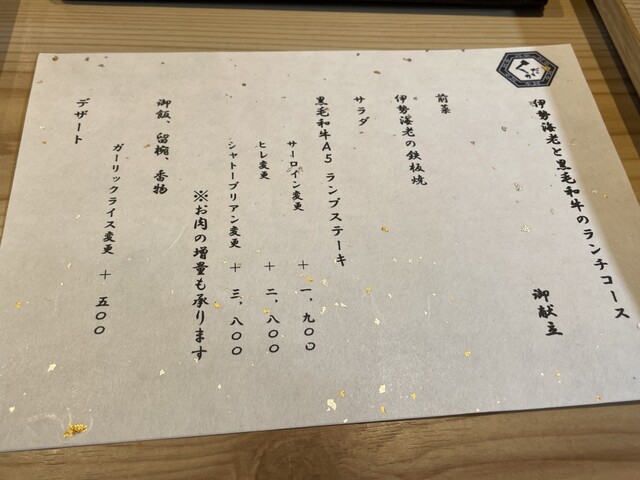 伊勢海老と黒毛和牛のランチコース
御献立
前菜
伊勢海老の鉄板焼
サラダ
黒毛和牛A5 ランプステーキ
サーロイン変更 + 一、九〇〇
ヒレ変更 + 二、八〇〇
シャトーブリアン変更 + 三、八〇〇
※お肉の増量も承ります
御飯、留椀、香物
ガーリックライス変更 + 五〇〇
デザート